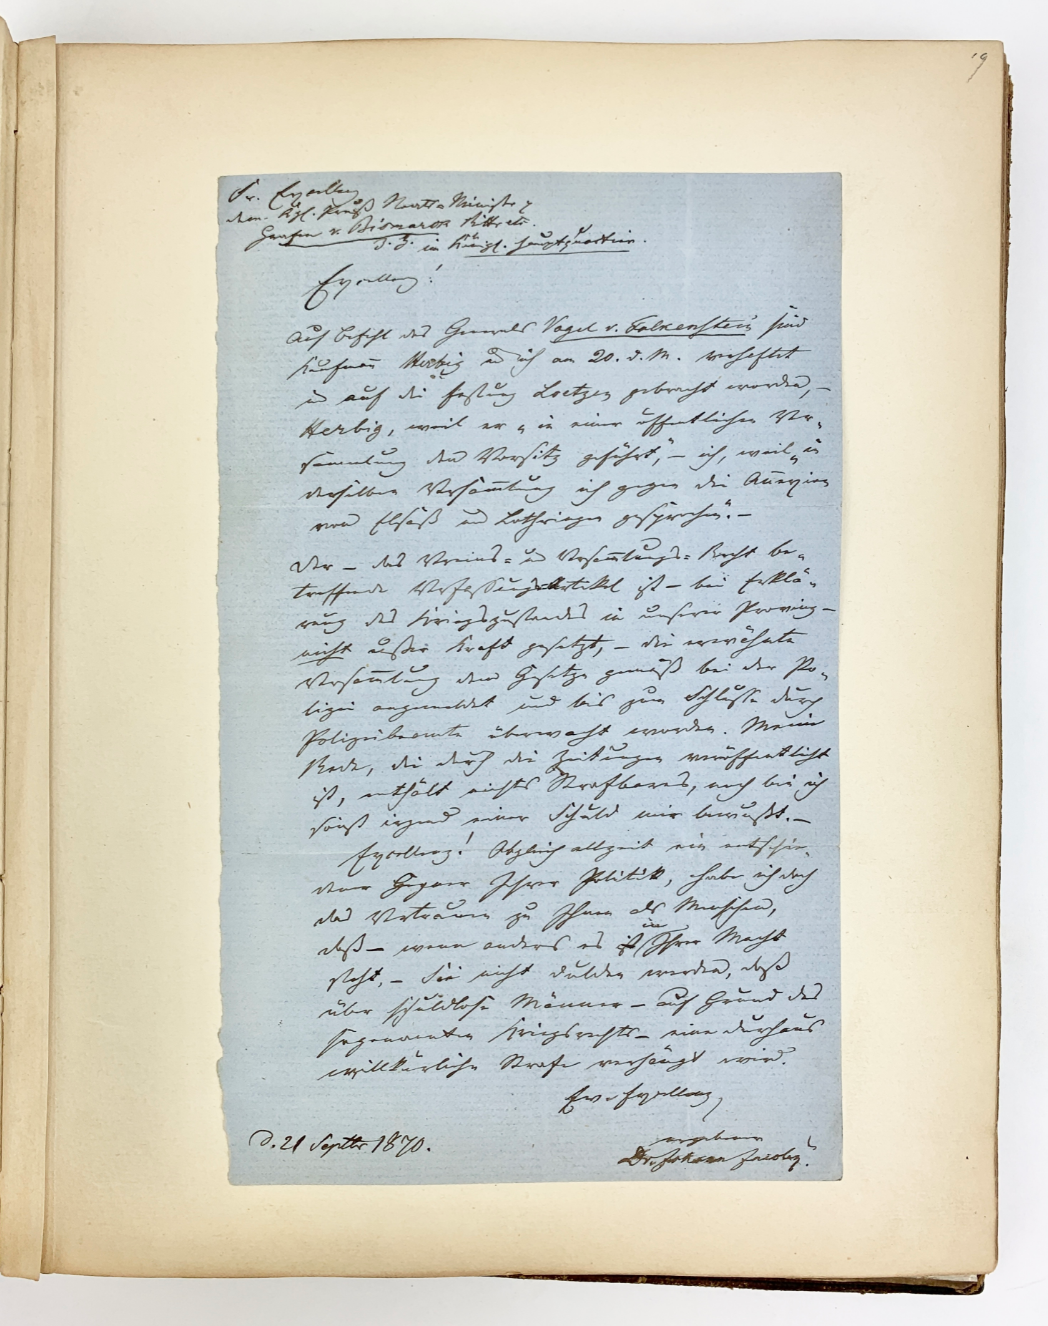 19
Sr. Excellenz
dem Kgl. Preuß. Staats-Minister
Grafen v. Bismarck Ritter etc.
d. Z. im Königl. Hauptquartier.
Excellenz!
Auf Befehl des Generals Vogel v. Falkenstein sind
Kaufmann Herbig und ich am 20. d. M. verhaftet
und auf die Festung Loetzen gebracht worden, –
Herbig, weil er „in einer öffentlichen Ver-
sammlung den Vorsitz geführt“, – ich, weil „in
derselben Versammlung ich gegen die Annexion
von Elsaß und Lothringen gesprochen“. –
Der – das Vereins- und Versammlungs-Recht be-
treffende Verfassungsartikel ist – bei Erklä-
rung des Kriegszustandes in unserer Provinz –
nicht außer Kraft gesetzt, – die erwähnte
Versammlung dem Gesetze gemäß bei der Po-
lizei angemeldet und bis zum Schlusse durch
Polizeibeamte überwacht worden. Meine
Rede, die durch die Zeitungen veröffentlicht
ist, enthält nichts Strafbares, noch bin ich
sonst irgend einer Schuld mir bewußt. –
Excellenz! Obgleich allzeit ein entschie-
dener Gegner Ihrer Politik, habe ich doch
das Vertrauen zu Ihnen als Menschen,
daß – wenn anders es in Ihrer Macht
steht, – Sie nicht dulden werden, daß
über schuldlose Männer – auf Grund des
sogenannten Kriegsrechts – eine durchaus
willkürliche Strafe verhängt wird.
Ew. Excellenz
ergebener
Dr. Johann Jacoby.
d. 21 Septbr 1870.